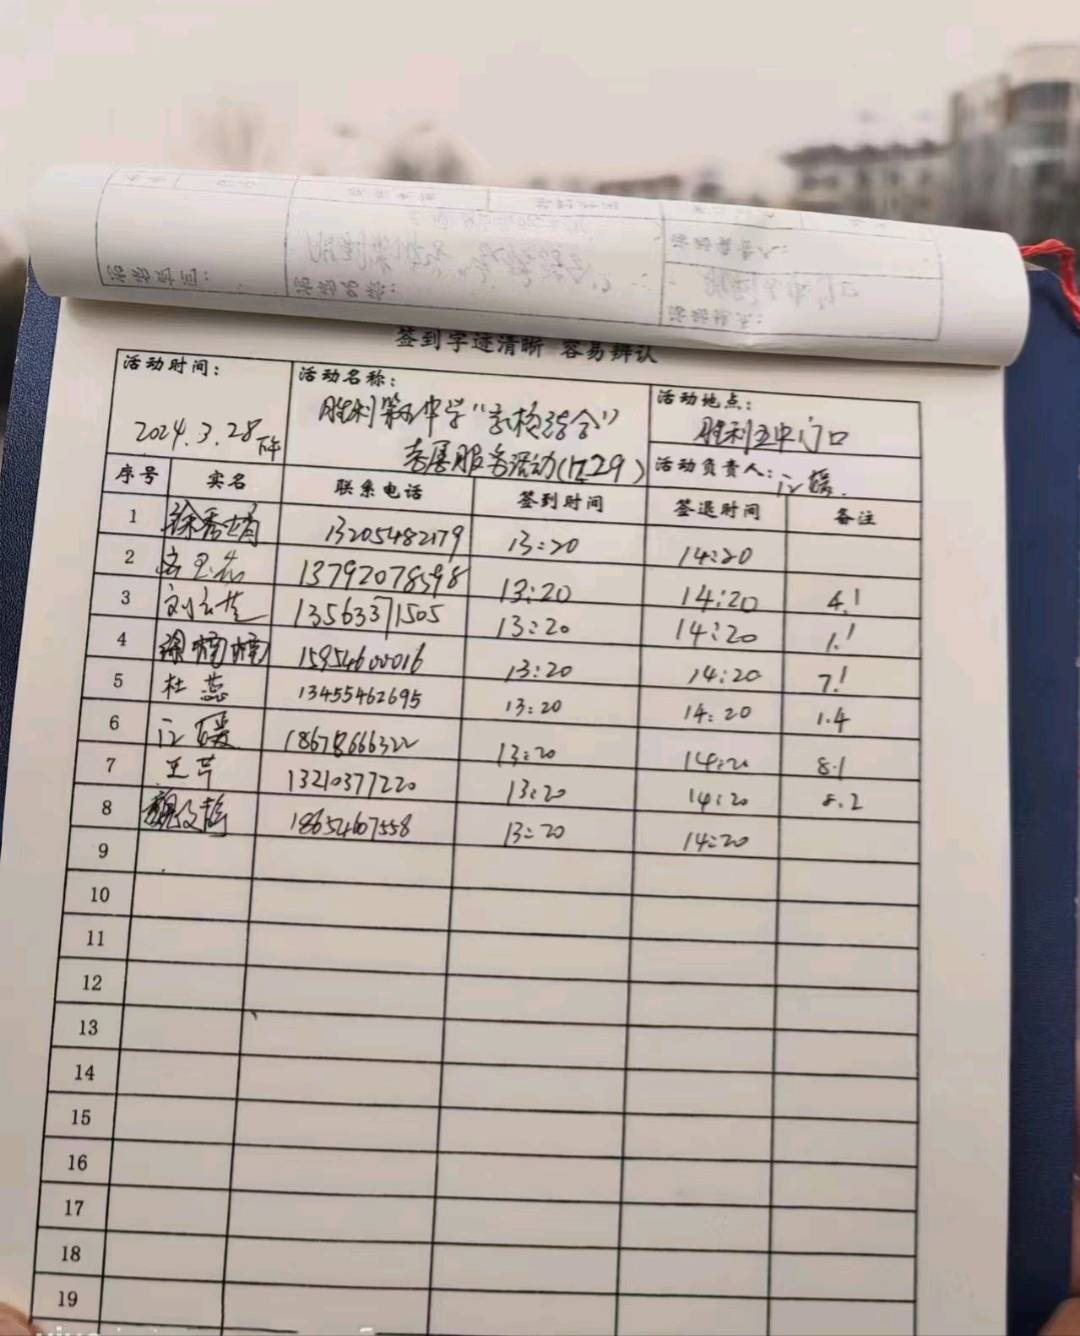 签到字迹清晰 容易辨认
活动时间： 活动名称： 活动地点：
2024.3.28下午 胜利第五中学“家校结合” 胜利五中门口
志愿服务活动(1229) 活动负责人：
序号 实名 联系电话 签到时间 签退时间 备注
1 13205482179 13:20 14:20
2 13792078598 13:20 14:20 4.1
3 13563371505 13:20 14:20 1.1
4 徐楠楠 15954600016 13:20 14:20 7.1
5 杜蕊 13455462695 13:20 14:20 1.4
6 18678666322 13:20 14:20 8.1
7 王芹 13210377220 13:20 14:20 8.2
8 18654607558 13:20 14:20
9
10
11
12
13
14
15
16
17
18
19